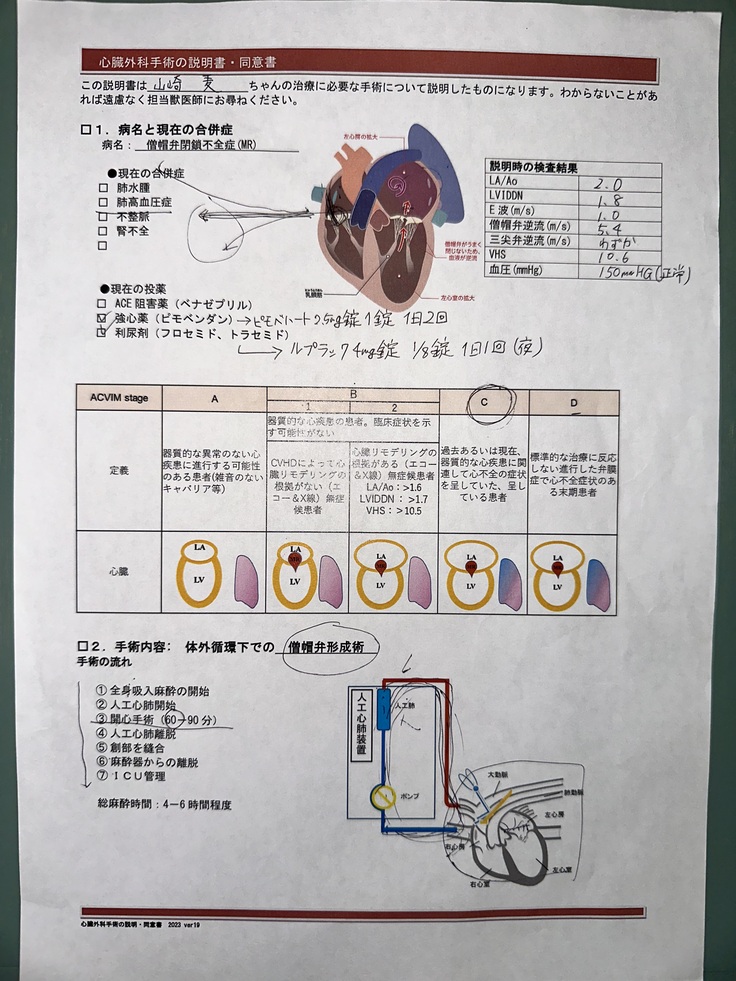 心臓外科手術の説明書・同意書
この説明書は 山崎 麦 ちゃんの治療に必要な手術について説明したものになります。わからないことがあ
れば遠慮なく担当獣医師にお尋ねください。
□1．病名と現在の合併症
病名： 僧帽弁閉鎖不全症(MR)
●現在の合併症
□ 肺水腫
□ 肺高血圧症
□ 不整脈
□ 腎不全
□
左心房の拡大
僧帽弁がうまく
閉じないため、
血液が逆流
乳頭筋
左心室の拡大
説明時の検査結果
LA/Ao 2.0
LVIDDN 1.8
E波(m/s) 1.0
僧帽弁逆流(m/s) 5.4
三尖弁逆流(m/s) わずか
VHS 10.6
血圧(mmHg) 150mmHG(正常)
●現在の投薬
□ ACE阻害薬（ベナゼプリル）
☑ 強心薬（ピモベンダン）→ピモベハート2.5mg錠1錠 1日2回
☑ 利尿剤（フロセミド、トラセミド）
→ルプラック4mg錠 1/8錠 1日1回（夜）
ACVIM stage A B C D
1 2
定義
器質的な異常のない心
疾患に進行する可能性
のある患者(雑音のない
キャリア等)
器質的な心疾患の患者。臨床症状を示
す可能性がない
CVHDによって心
臓リモデリングの
根拠がない（エ
コー＆X線）無症
候患者
心臓リモデリングの
根拠がある（エコー
＆X線）無症候患者
LA/Ao：>1.6
LVIDDN：>1.7
VHS：>10.5
過去あるいは現在、
器質的な心疾患に関
連して心不全の症状
を呈していた、呈し
ている患者
標準的な治療に反応
しない進行した弁膜
症で心不全症状のあ
る末期患者
心臓
LA LA LA LA LA
MR MR MR MR
LV LV LV LV LV
□2．手術内容： 体外循環下での 僧帽弁形成術
手術の流れ
①全身吸入麻酔の開始
②人工心肺開始
③開心手術（60→90分）
④人工心肺離脱
⑤創部を縫合
⑥麻酔器からの離脱
⑦ＩＣＵ管理
総麻酔時間：4－6時間程度
人工心肺装置
人工肺
ポンプ
大動脈
肺動脈
左心房
右心房
左心室
右心室
心臓外科手術の説明・同意書 2023 ver19